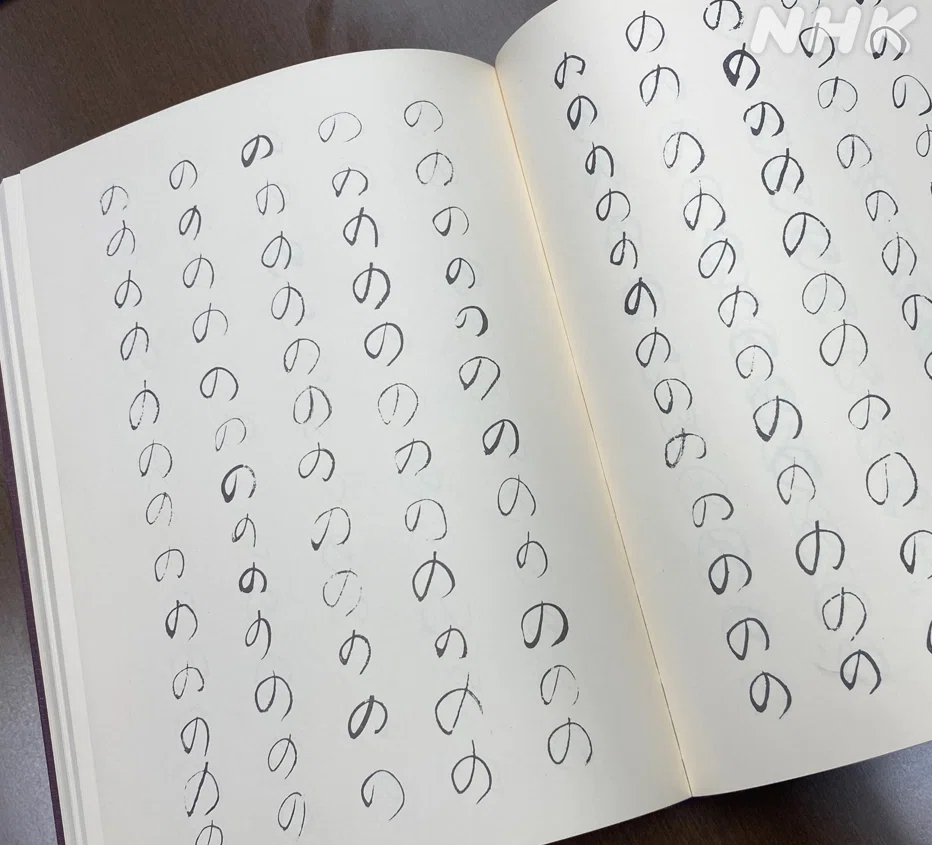 NHK
のののの
のののののののの
ののののののののののの
のののののののののののの
ののののののののののののの
のののののののののののの
のののののののののののの
のののののののののののの
ののののののののののののの
ののののののののののののの